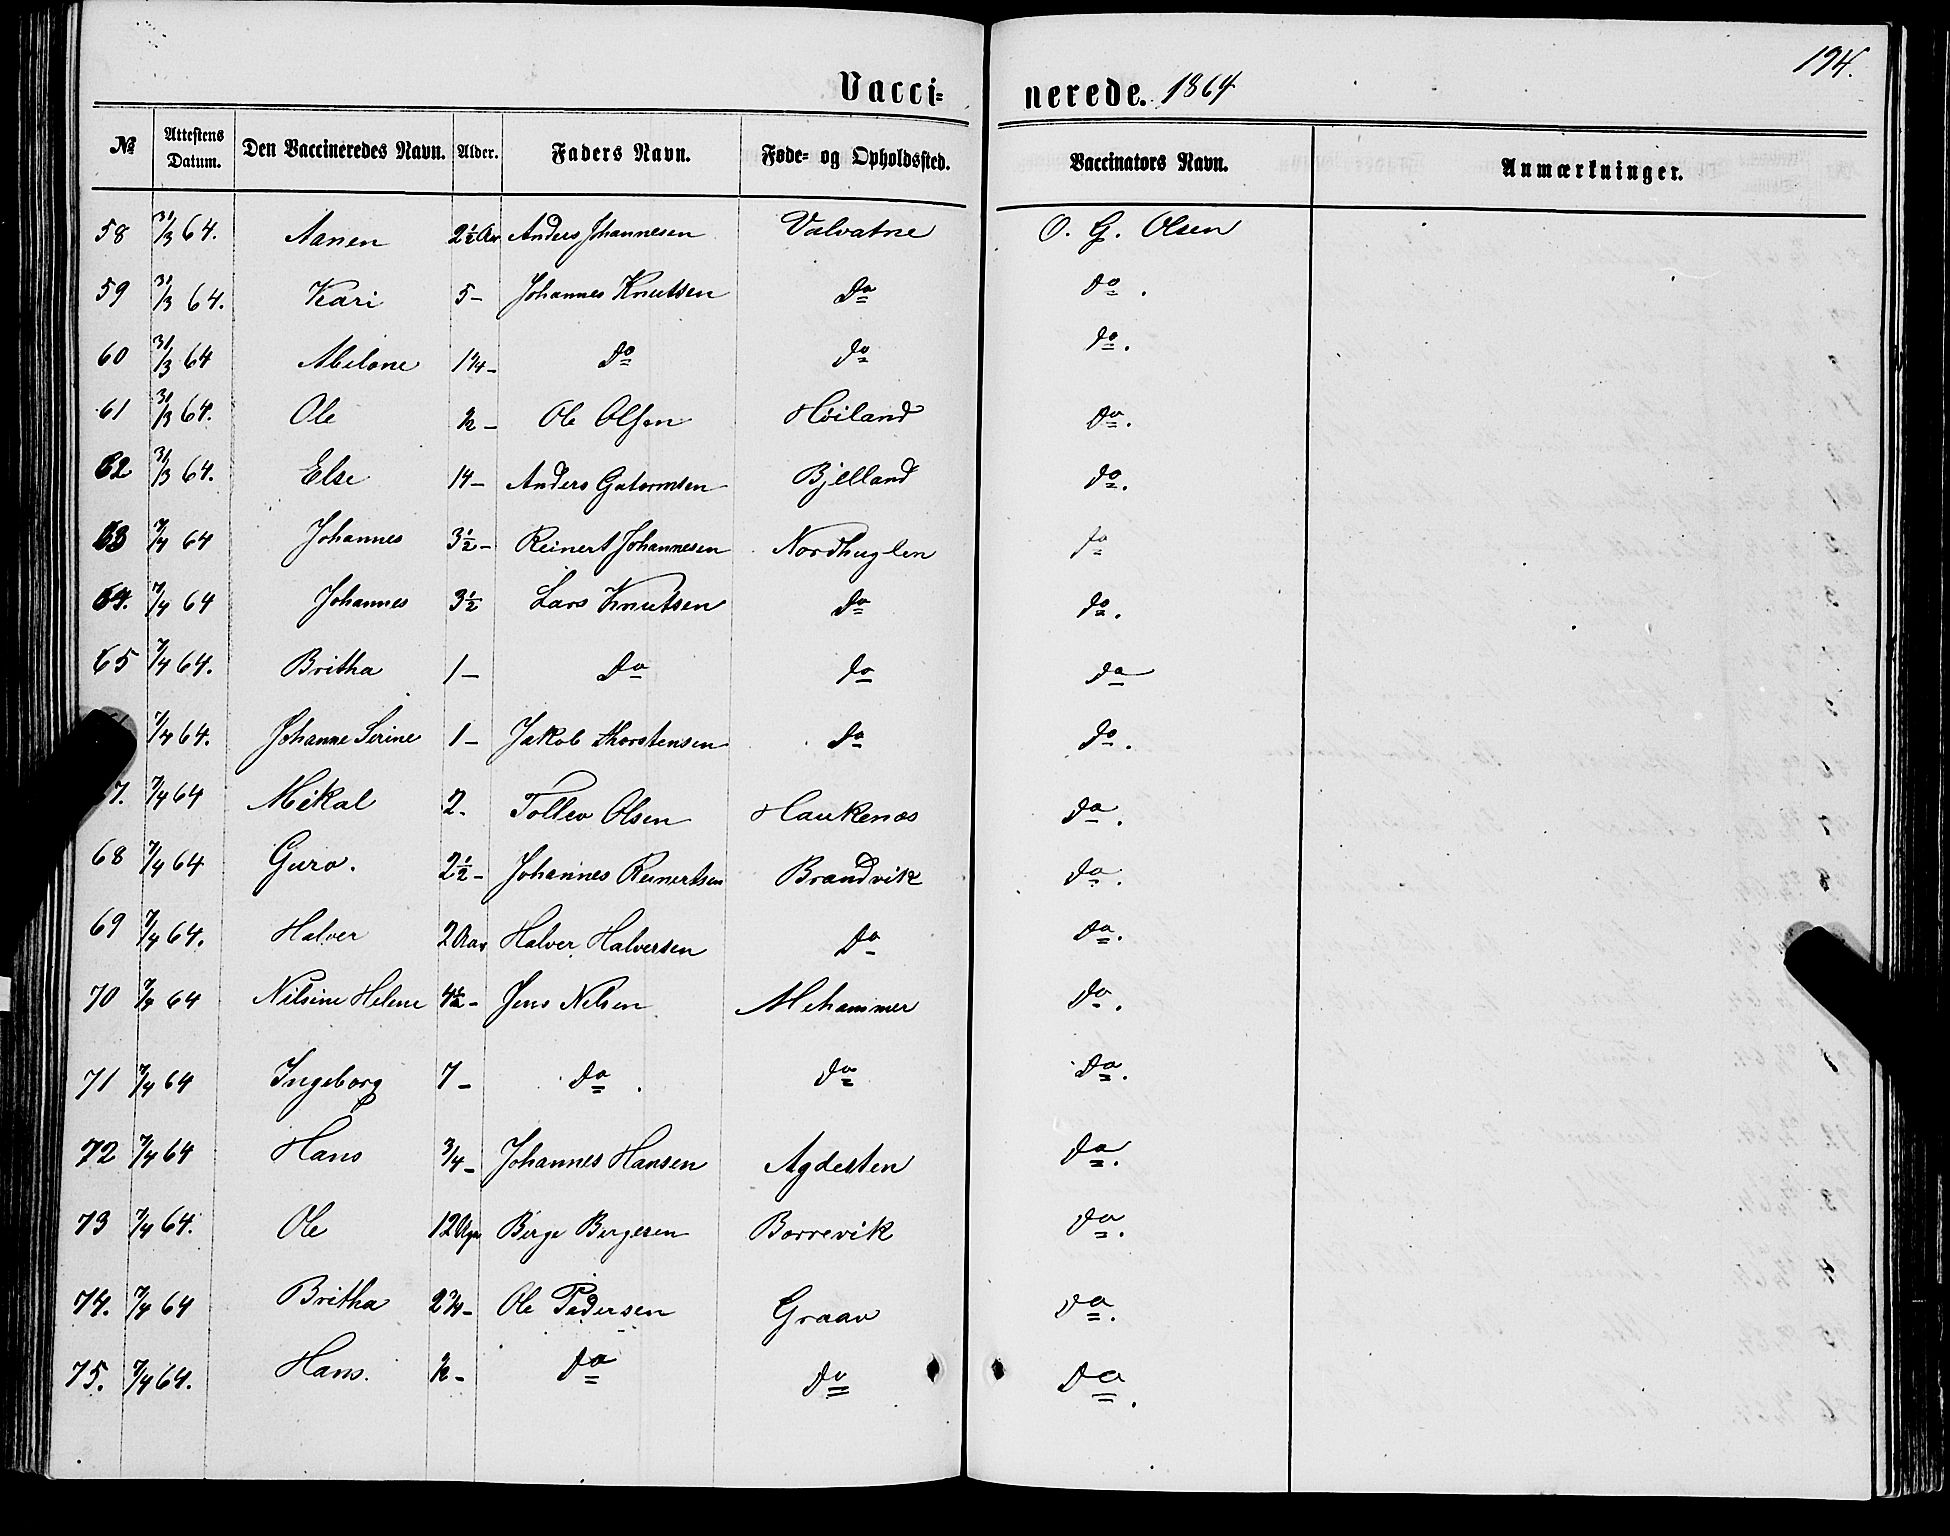 194.
Vacci- nerede. 1864
№ Attestens Datum. Den Vaccineredes Navn. Alder. Faders Navn. Føde- og Opholdssted. Vaccinators Navn. Anmærkninger.
58 31/3 64. Aanen 2½ Aar Anders Johannesen Valvatne O. G. Olsen
59 31/3 64. Kari 5- Johannes Knutsen do do.
60 31/3 64 Abelone 1¼- do do do.
61 31/3 64. Ole ½- Ole Olsen Høiland do.
62 31/3 64. Else 14- Anders Gutormsen Bjelland do.
63 7/4 64 Johannes 3½- Reinert Johannesen Nordhuglen do
64. 7/4 64 Johannes 3½ Lars Knutsen do do.
65 7/4 64. Britha 1- do do do
7/4 64. Johanne Serine 1- Jakob Thorstensen do do.
7. 7/4 64 Mikal 2. Tollev Olsen Haukenæs do.
68 7/4 64 Guro. 2½- Johannes Reinertsen Brandvik do.
69 7/4 64. Halver 2 Aar Halver Halversen do do.
70 7/4 64 Nilsine Helene 4½- Jens Nelsen Mehammer do.
71 7/4 64 Ingeborg 7- do. do do.
72 7/4 64 Hans ¾- Johannes Hansen Agdesten do.
73 7/4 64. Ole 12 Birge Birgesen Borrevik do.
74. 7/4 64 Britha Ole Pedersen Graav do.
75. 7/4 64. Hans. ½- do do do.